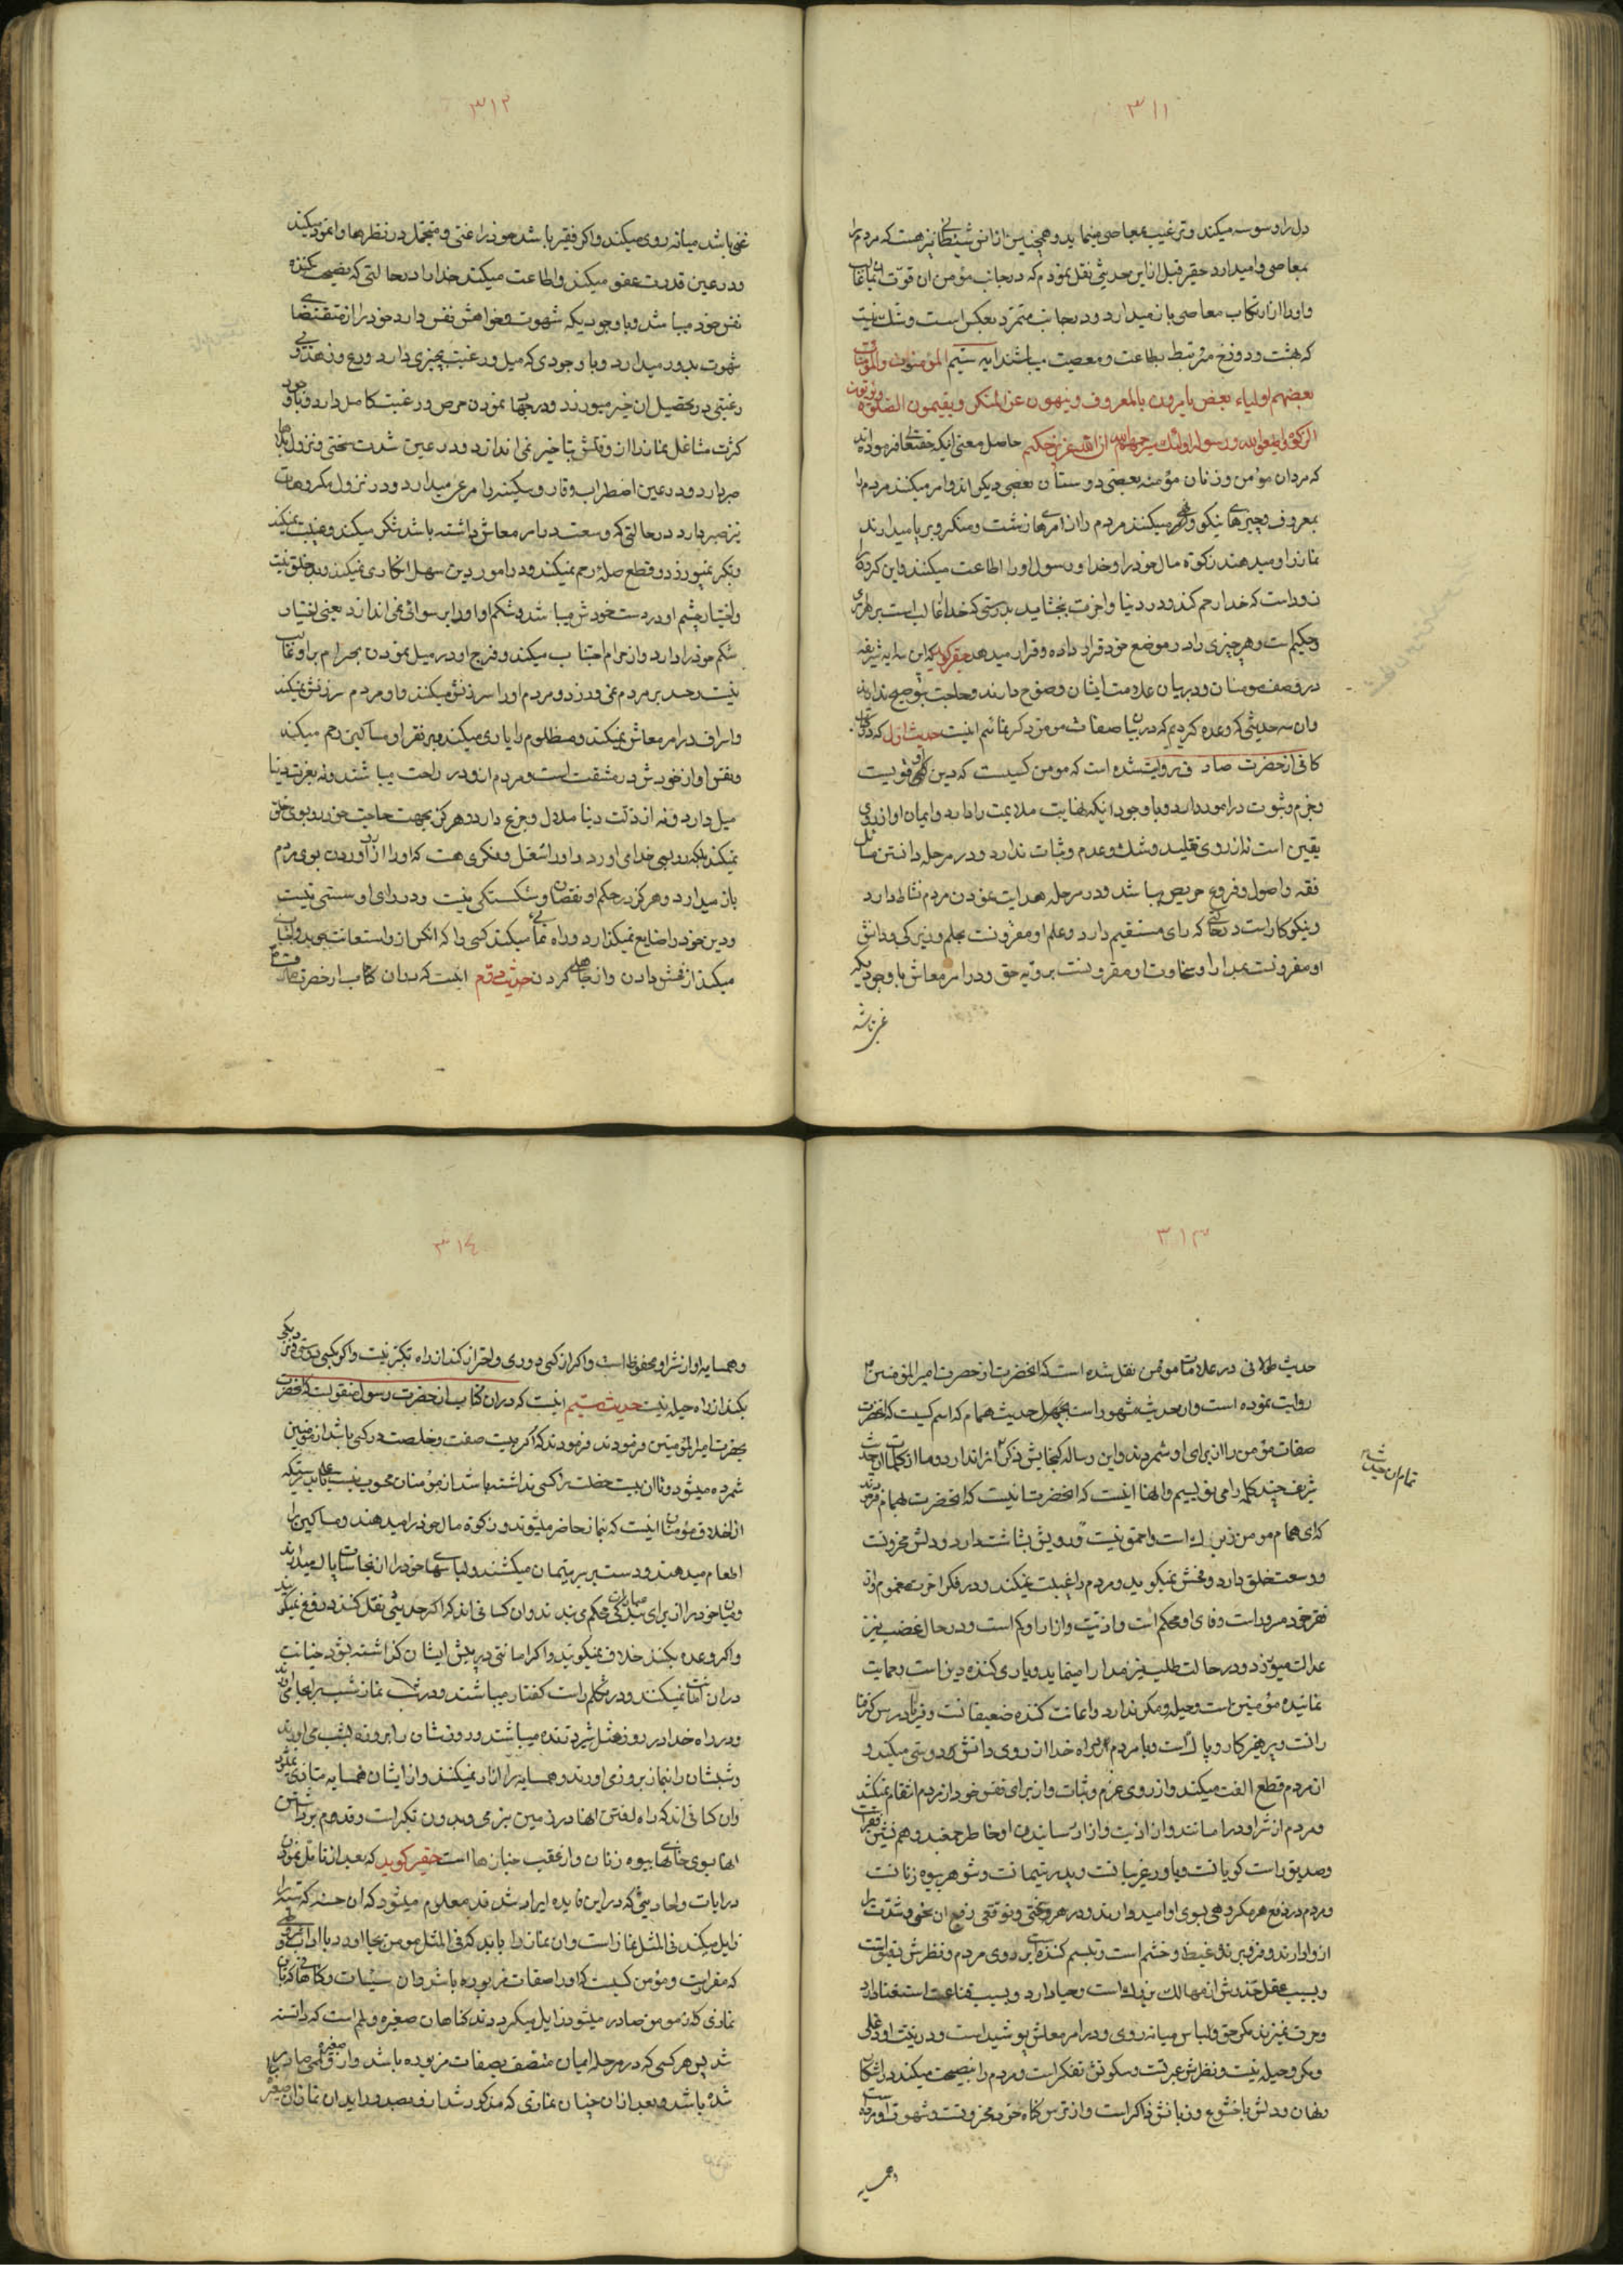 ۳۱۱
دل را وسوسه میکند و ترغیب بمعاصی مینماید و همچنین از انس شیطانی نیز هست که مردم را
بمعاصی وامیدارد حقیر قبل از این حدیثی نقل نمودم که در جانب مؤمن ان قوّت
و او را از ارتکاب معاصی باز میدارد و در جانب متمرّد بعکس است و شک نیست
که بهشت و دوزخ مرتبط بطاعت و معصیت میباشند ایه سیّم المؤمنون والمؤمنات
بعضهم اولیاء بعض یامرون بالمعروف و ینهون عن المنکر و یقیمون الصلوة و یؤتون
الزکوة و یطیعون الله و رسوله اولئک سیرحمهم الله ان الله عزیز حکیم حاصل معنی اینکه حقتعالی فرموده اند
که مردان مؤمن و زنان مؤمنه بعضی دوستان بعضی دیکر اند و امر میکنند مردم را
بمعروف و چیزهای نیکو و نهی میکنند مردم را از امرهای زشت و منکر و برپا میدارند
نماز را و میدهند زکوة مال خود را و خدا و رسول او را اطاعت میکنند و این کروه
زود است که خدا رحم کند و در دنیا و اخرت بخشاید بدرستی که خدا غالب است بر هر چیزی
و حکیم است و هر چیزی را در موضع خود قرار داده و قرار میدهد حقیر کوید که این سه ایه شریفه
در وصف مومنان و در بیان علامت ایشان وضوح دارند و حاجت بتوضیح ندارند
و ان سه حدیثی که وعده کردیم که در بیان صفات مومن ذکر نمائیم اینست حدیث اول که در کتاب
کافی از حضرت صادق روایت شده است که مومن کسیست که دین او قویست
و جزم و ثبوت در امور دارد و با وجود اینکه نهایت ملایمت را دارد و ایمان او از روی
یقین است نه از روی تقلید و شک و عدم و ثبات ندارد و در مرحله دانستن مسائل
فقه و اصول و فروع حریص میباشد و در مرحله هدایت نمودن مردم نشاط دارد
و نیکو کار است در حالتی که رای مستقیم دارد و علم او مقرونست بحلم و زیرکی و دانش
او مقرونست بمدارا و سخاوت او مقرونست برویه حق و در امر معاش با وجودیکه
غنی باشد
۳۱۲
غنی باشد میانه روی میکند و اکر فقیر باشد خود را غنی و متجمل در نظرها وانمود میکند
و در عین قدرت عفو میکند و اطاعت میکند خدا را در حالتی که نصیحت کننده
نفس خود میباشد و با وجودیکه شهوت و خواهش نفس دارد خود را از مقتضای
شهوت بدور میدارد و با وجودی که میل و رغبت بچیزی دارد ورع و زهد و بی
رغبتی در تحصیل ان خیر میورزد و در جهاد نمودن حرص و رغبت کامل دارد و با وجود
کثرت مشاغل نماز را از وقتش بتاخیر نمی اندازد و در عین شدت سختی و نزول بلاها
صبر دارد و در عین اضطراب وقار و سکینه را مرعی میدارد و در نزول مکروهات
نیز صبر دارد در حالتی که وسعت در امر معاش داشته باشد شکر میکند و غیبت نمیکند
و تکبر نمیورزد و قطع صلهٔ رحم نمیکند و در امور دین سهل انکاری نمیکند و بد خلق نیست
و اختیار چشم او در دست خودش میباشد و شکم او او را برسوائی نمی اندازد یعنی اختیار
شکم خود را دارد و از حرام اجتناب میکند و فرج او در میل نمودن بحرام بر او غالب
نیست و حسد بر مردم نمی ورزد و مردم او را سرزنش میکنند و او مردم سرزنش نمیکند
و اسراف در امر معاش نمیکند و مظلوم را یاری میکند و بر فقرا و مساکین رحم میکند
و نفس او از خودش در مشقت است و مردم از او در راحت میباشند و نه بعزت دنیا
میل دارد و نه از ذلّت دنیا ملال و جزع دارد و هر کز بجهت حاجت خود رو بسوی خلق
نمیکند بلکه رو بسوی خدا می اورد و او را شغل و فکری هست که او را از رو آوردن بسوی مردم
باز میدارد و هر کز در حکم او نقصان و شکستکی نیست و در رای او سستی نیست
و دین خود را ضایع نمیکذارد و راه نمائی میکند کسی را که انکس از او استعانت جوید و اجتناب
میکند از فحش دادن و از جاهلی کردن حدیث دوّم اینست که در ان کتاب از حضرت صادق
۳۱۳
حدیث طولانی در علامات مؤمن نقل شده است که انحضرت از حضرت امیرالمؤمنین
روایت نموده است و ان حدیث مشهور است بحدیث همام که اسم کسیست که انحضرت
صفات مؤمن را از برای او شمردند و این رساله کنجایش ذکر انرا ندارد و ما از کلمات ان حدیث
شریف چند کلمه را می نویسیم و انها اینست که انحضرت بهمام فرمودند
که ای همام مومن زیرک است و احمق نیست و در رویش بشاشت دارد و دلش محزونست
و وسعت خلق دارد و فحش نمیکوید و مردم را غیبت نمیکند و در فکر اخرت مغموم و از
فقر خود مسرور است و وفای او محکم است و اذیّت و ازار او کم است و در حال غضب نیز
عدالت میورزد و در حالت طلب نیز مدارا مینماید و یاری کننده دین است و حمایت
نماینده مؤمنین است و حیله و مکر ندارد و اعانت کننده ضعیفانست و فریادرس کرفتا
رانست و پرهیزکار و پاک است و با مردم در راه خدا از روی دانش دوستی میکند و
از مردم قطع الفت میکند و از روی عزم و ثبات و از برای نفس خود از مردم انتقام نمیکشد
و مردم از شر او در امانند و از اذیت و ازار رسانیدن او خاطر جمعند و هم نشین فقرا است
و صدیق راست کویانست و یاور غریبانست و پدر یتیمانست و شوهر بیوه زنانست
و مردم در دفع هر مکروهی بسوی او امیدوارند و در هر سختی توقع رفع ان سختی و شدت را
از او دارند و فرو برنده غیظ و خشم است و تبسم کننده است بر روی مردم و نظرش دقیق است
و بسبب عقل حذرش از مهالک بزرک است و حیا دارد و بسبب قناعت استغنا دارد
و حرف نمیزند مکر حق و لباس میانه روی و در امر معاش پوشیده است و در نیّت او دغلی
و مکر و حیله نیست و نظرش عبرتست و سکوتش تفکر است و مردم را نصیحت میکند در اشکار
و نهان و دلش با خشوع و زبانش ذاکر است و از ترس کناه خود محزونست و شهوت او مرده است
و همسایه
تمام ان حدیث
۳۱٤
و همسایه او از شر او محفوظ است و اکر از کسی دوری و احتراز کند از راه تکبّر نیست و اکر بکسی دوستی و نزدیکی
بکند از راه حیله نیست حدیث سیّم اینست که در ان کتاب از حضرت رسول منقولست که انحضرت
بحضرت امیر المؤمنین فرمودند فرمودند که اکر بیست صفت و خصلت در کسی باشد از مؤمنین
شمرده میشود و اکر ان بیست خصلت را کسی نداشته باشد از مؤمنان محسوب نیست
از اخلاق مؤمنان اینست که بنماز حاضر میشوند و زکوة مال خود را میدهند و مساکین را
اطعام میدهند و دست بر سر یتیمان میکشند و لباسهای خود را از نجاسات پاک میدارند
و میان خود را از برای بندکی محکم می بندند و ان کسانی اند که اکر حدیثی نقل کنند دروغ نمیکویند
و اکر وعده بکنند خلاف نمیکویند و اکر امانتی در پیش ایشان کذاشته بشود خیانت
در ان امانت نمیکنند و در تکلم راست کفتار میباشند و در شب نماز شب را بجا می اورند
و در راه خدا در روز مثل شیر درنده میباشند و روزشان را بروزه بشب می اورند
و شبشان را بنماز بروز می اورند و همسایه را ازار نمیکنند و از ایشان همسایه متأذی نمیشود
و ان کسانی اند که راه رفتن انها در زمین بنرمی و بدون تکبر است و قدوم برداشتن
انها بسوی خانهای بیوه زنان و از عقب جنازها است حقیر کوید که بعد از تأمّل نمودن
در ایات و احادیثی که در این فایده ایراد شدند معلوم میشود که ان حسنه که سیئه را
زایل میکند فی المثل نماز است و ان نماز را باید که فی المثل مومن بجا اورد با اداب و شرایطی
که مقرر است و مؤمن کسیست که او را صفات مزبوره باشد و ان سیئات و کناهانی که از ان
نمازی که از مومن صادر میشود زایل میکردد ان کناهان صغیره و لمم است که دانسته
شد پس هر کسی که در مرحله ایمان متصف بصفات مزبوره باشد و از او صغیره و لممی صادر
شده باشد و بعد از ان چنان نمازی که مذکور شد از او بصدور اید ان نماز ان صغیره